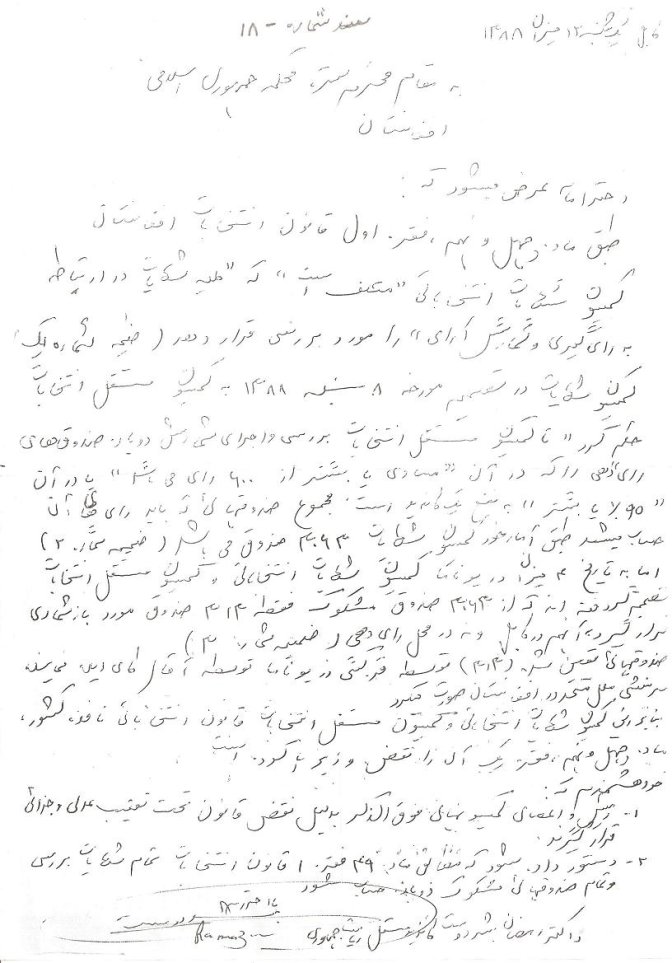 سند شماره - ۱۸
کابل یکشنبه ۱۲ میزان ۱۳۸۸
به مقام محترم ستره محکمه جمهوری اسلامی
افغانستان
احتراماً عرض میشود که:
طبق ماده چهل و نهم، فقره اول قانون انتخابات افغانستان
کمیسیون شکایات انتخاباتی "مکلف است" که "کلیه شکایات در ارتباط
به رای گیری و شمارش آرای" را مورد بررسی قرار دهد (ضمیمه شماره یک)
کمیسیون شکایات در تصمیم مورخه ۸ سنبله ۱۳۸۸ به کمیسیون مستقل انتخابات
حکم کرد "تا کمیسیون مستقل انتخابات بررسی و اجرای شمارش دوباره صندوق‌های
رای دهی را که در آن "مساوی یا بیشتر از ۶۰۰ رای می باشد" یا در آن
"۹۵٪ یا بیشتر" به یک کاندید است. مجموع صندوقهائی که باید رای های آن
حساب میشد طبق آمار خود کمیسیون شکایات ۳۰۶۳ صندوق می باشد (ضمیمه شماره ۲)
اما به تاریخ ۲ میزان در یوناما کمیسیون شکایات انتخاباتی و کمیسیون مستقل انتخابات
تصمیم گرفته اند که از ۳۰۶۳ صندوق مشکوک فقط ۳۱۳ صندوق مورد بازشماری
قرار گیرد، آنهم در کابل و نه در محل رای دهی (ضمیمه شماره ۳)
صندوقهائی تعین شده (۳۱۳) توسط قرعه کشی در یوناما توسط آقای کای ایده نماینده
سرمنشی ملل متحد در افغانستان صورت میگیرد
بنابراین کمیسیون شکایات انتخاباتی و کمیسیون مستقل انتخابات قانون انتخاباتی نافذه کشور،
ماده چهل و نهم، فقره یک آن را نقض و زیر پا کرده است
خواهشمندم که:
۱- رئیس و اعضای کمیسیونهای فوق الذکر بدلیل نقض قانون تحت تعقیب عدلی و جزائی
قرار گیرند.
۲- دستور داده شود که مطابق ماده ۴۹ فقره ۱ قانون انتخابات تمام شکایات بررسی
و تمام صندوقهائی مشکوک دوباره حساب شود
با احترام
داکتر رمضان بشردوست کاندید مستقل ریاست جمهوری
Ramazan